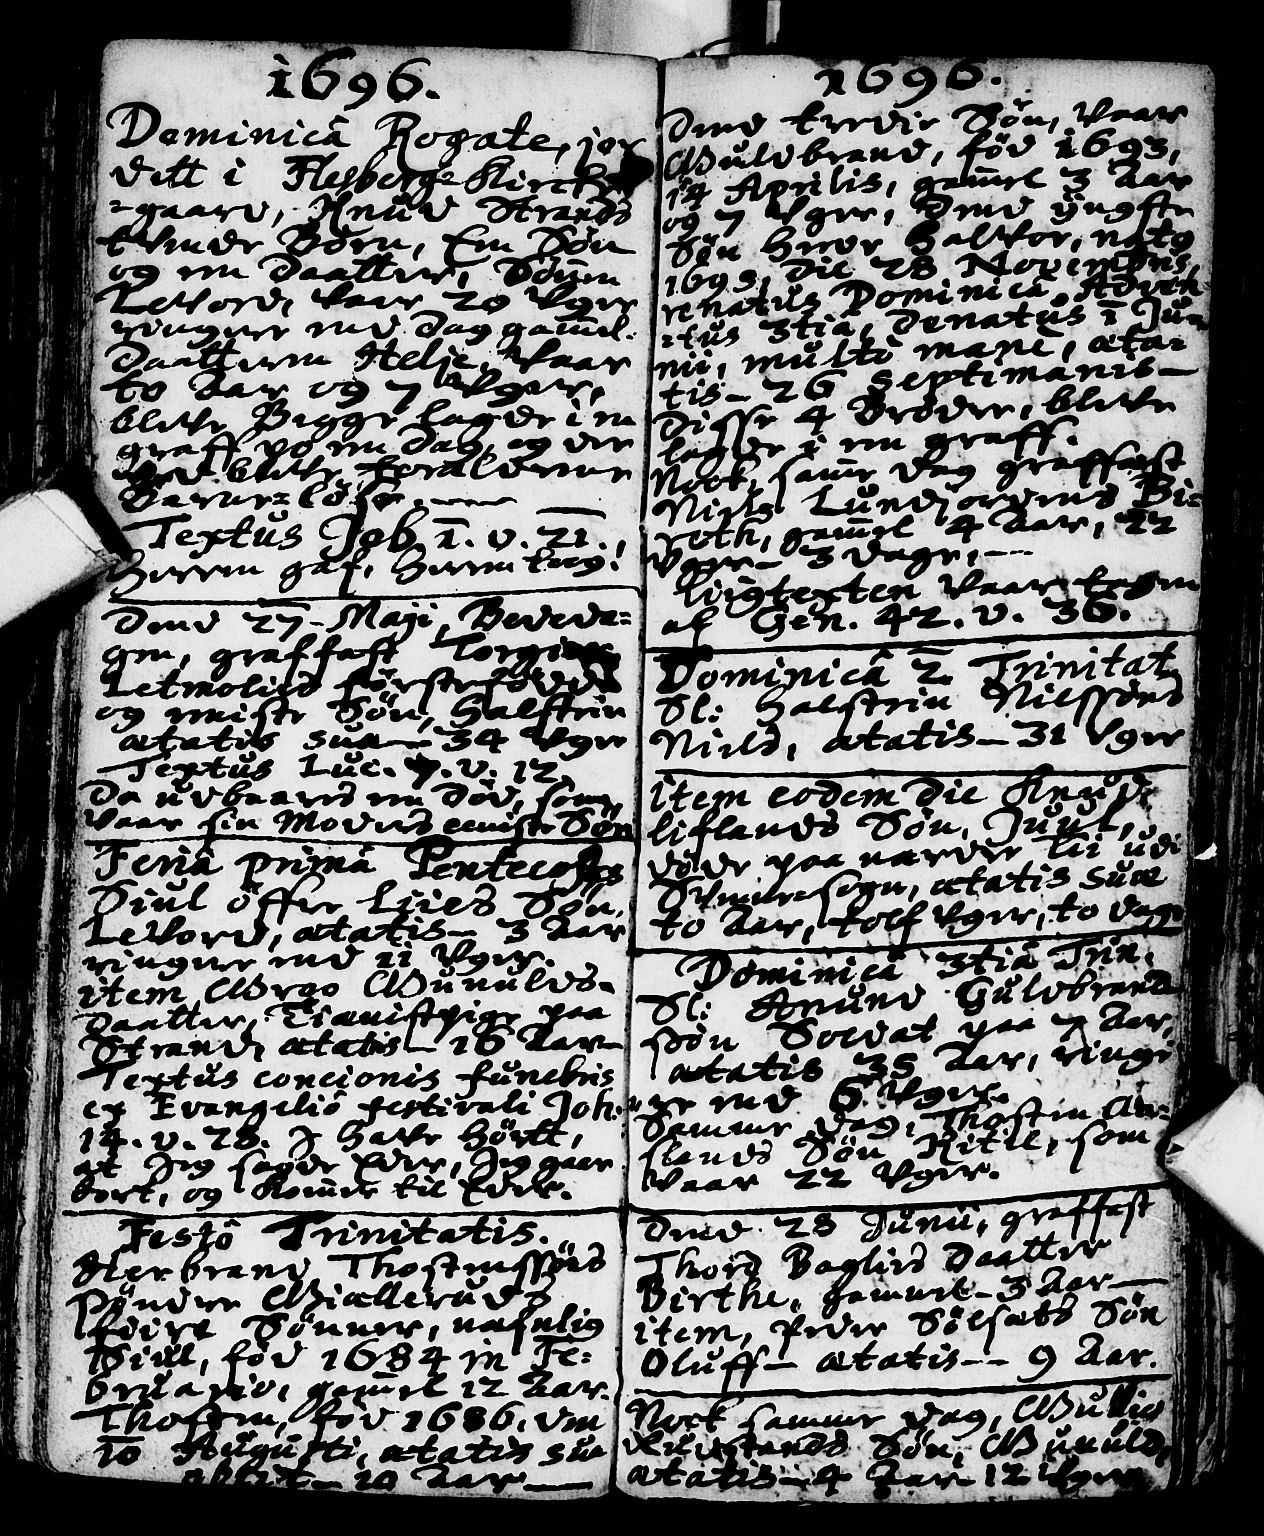 1696.
Dominicâ Rogate, jor
dett i Flesberg Kirche
=gaard, Knud Strands
tvende Børn, Een Søn
og en Daatter, Sønen
LeVord, Vaar 20 Vger
ringere end dag gam̃el.
Daatteren Helje, Vaar
to Aar og 7 Vger,
bleVe Begge lagde i en
graff po en dag, og der
Ved bleVe forælderne
Barne=løse.
Textus Job. 1. v. 21.,
Herren gaf, Herren tog.
Dend 27 - Maji, Bededa=
gen, graffast
Letmolies førstefødde
og eniste Søn, Halsten
ætatis suæ 34 Vger
Textus Luc. 7. v. 12.
Da udbaares en død, som
Vaar sin Moders eeniste Søn
Feriâ primâ Pentecostes
Siul öffre Liies Søn,
LeVord, ætatis - 3 Aar
ringere end 11 Vger.
item Gunulds=
daatter, Tienistpige paa
Strand, ætatis - 16 Aar
Textus concionis funebris
ex Evangeliô festivali Joh:
14. v. 28. I haVe hørtt,
at Jeg sagde Eder, Jeg gaar
bort, og kom̃er til Eder.
Festô Trinitatis.
Herbrand Thostenssøns
Sønder Giællerudz
fiire Sønner, nafnlig
Siul, fød 1684 in Fe=
bruario, gam̃el 12 Aar.
Thosten, fød 1686. den
10 Augusti, ætatis suæ
10 Aar
1696.
Dend tredie Søn, Vaar
Guldbrand, fød 1693,
14 Aprilis, gam̃el 3 Aar
og 7 Vger, Dend yngste
Søn Halvor, natus
1695, die 28 Novembris,
renatus Dominicâ Adven=
=tus 3tiâ, denatus 1 Ju=
nii, multo mane, æta=
tis - 26 septimanis
Disse 4 Brødre, bleVe
lagde i en graff.
Nock, sam̃e dag graffæst
Niels Lundjordens Bi=
roth, gam̃el 4 Aar, 22
Vger - 3 dage,
liigtexten Vaar tagen
af Gen. 42. v. 36.
Dominicâ 2. Trinitat
Sl: Halsten Nilssøns
Niels, ætatis - 31 Vger
item eodem die Knud
liflands Søn, Juul,
døde paa nærder lii udi
Svennesogn, ætatis suæ
to Aar, tolf Vger, to dage
Dominicâ 3tiâ Trin.
Sl: Anund Guldbrand
søn Soldat paa 7 Aar,
ætatis 35 Aar, ringe
=re end 6 Vger.
Samme dag, Thosten
slands Søn Kitil, som
Vaar 22 Vger.
Dend 28 Junii, graffæst
Thord Baglies Daatter
Birthe, gammel - 3 Aar
item, Peder Sölsats Søn
Oluff - ætatis - 9 Aar.
Nock samme dag,
Søn, Gunuld,
ætatis - 4 Aar 12 Vger